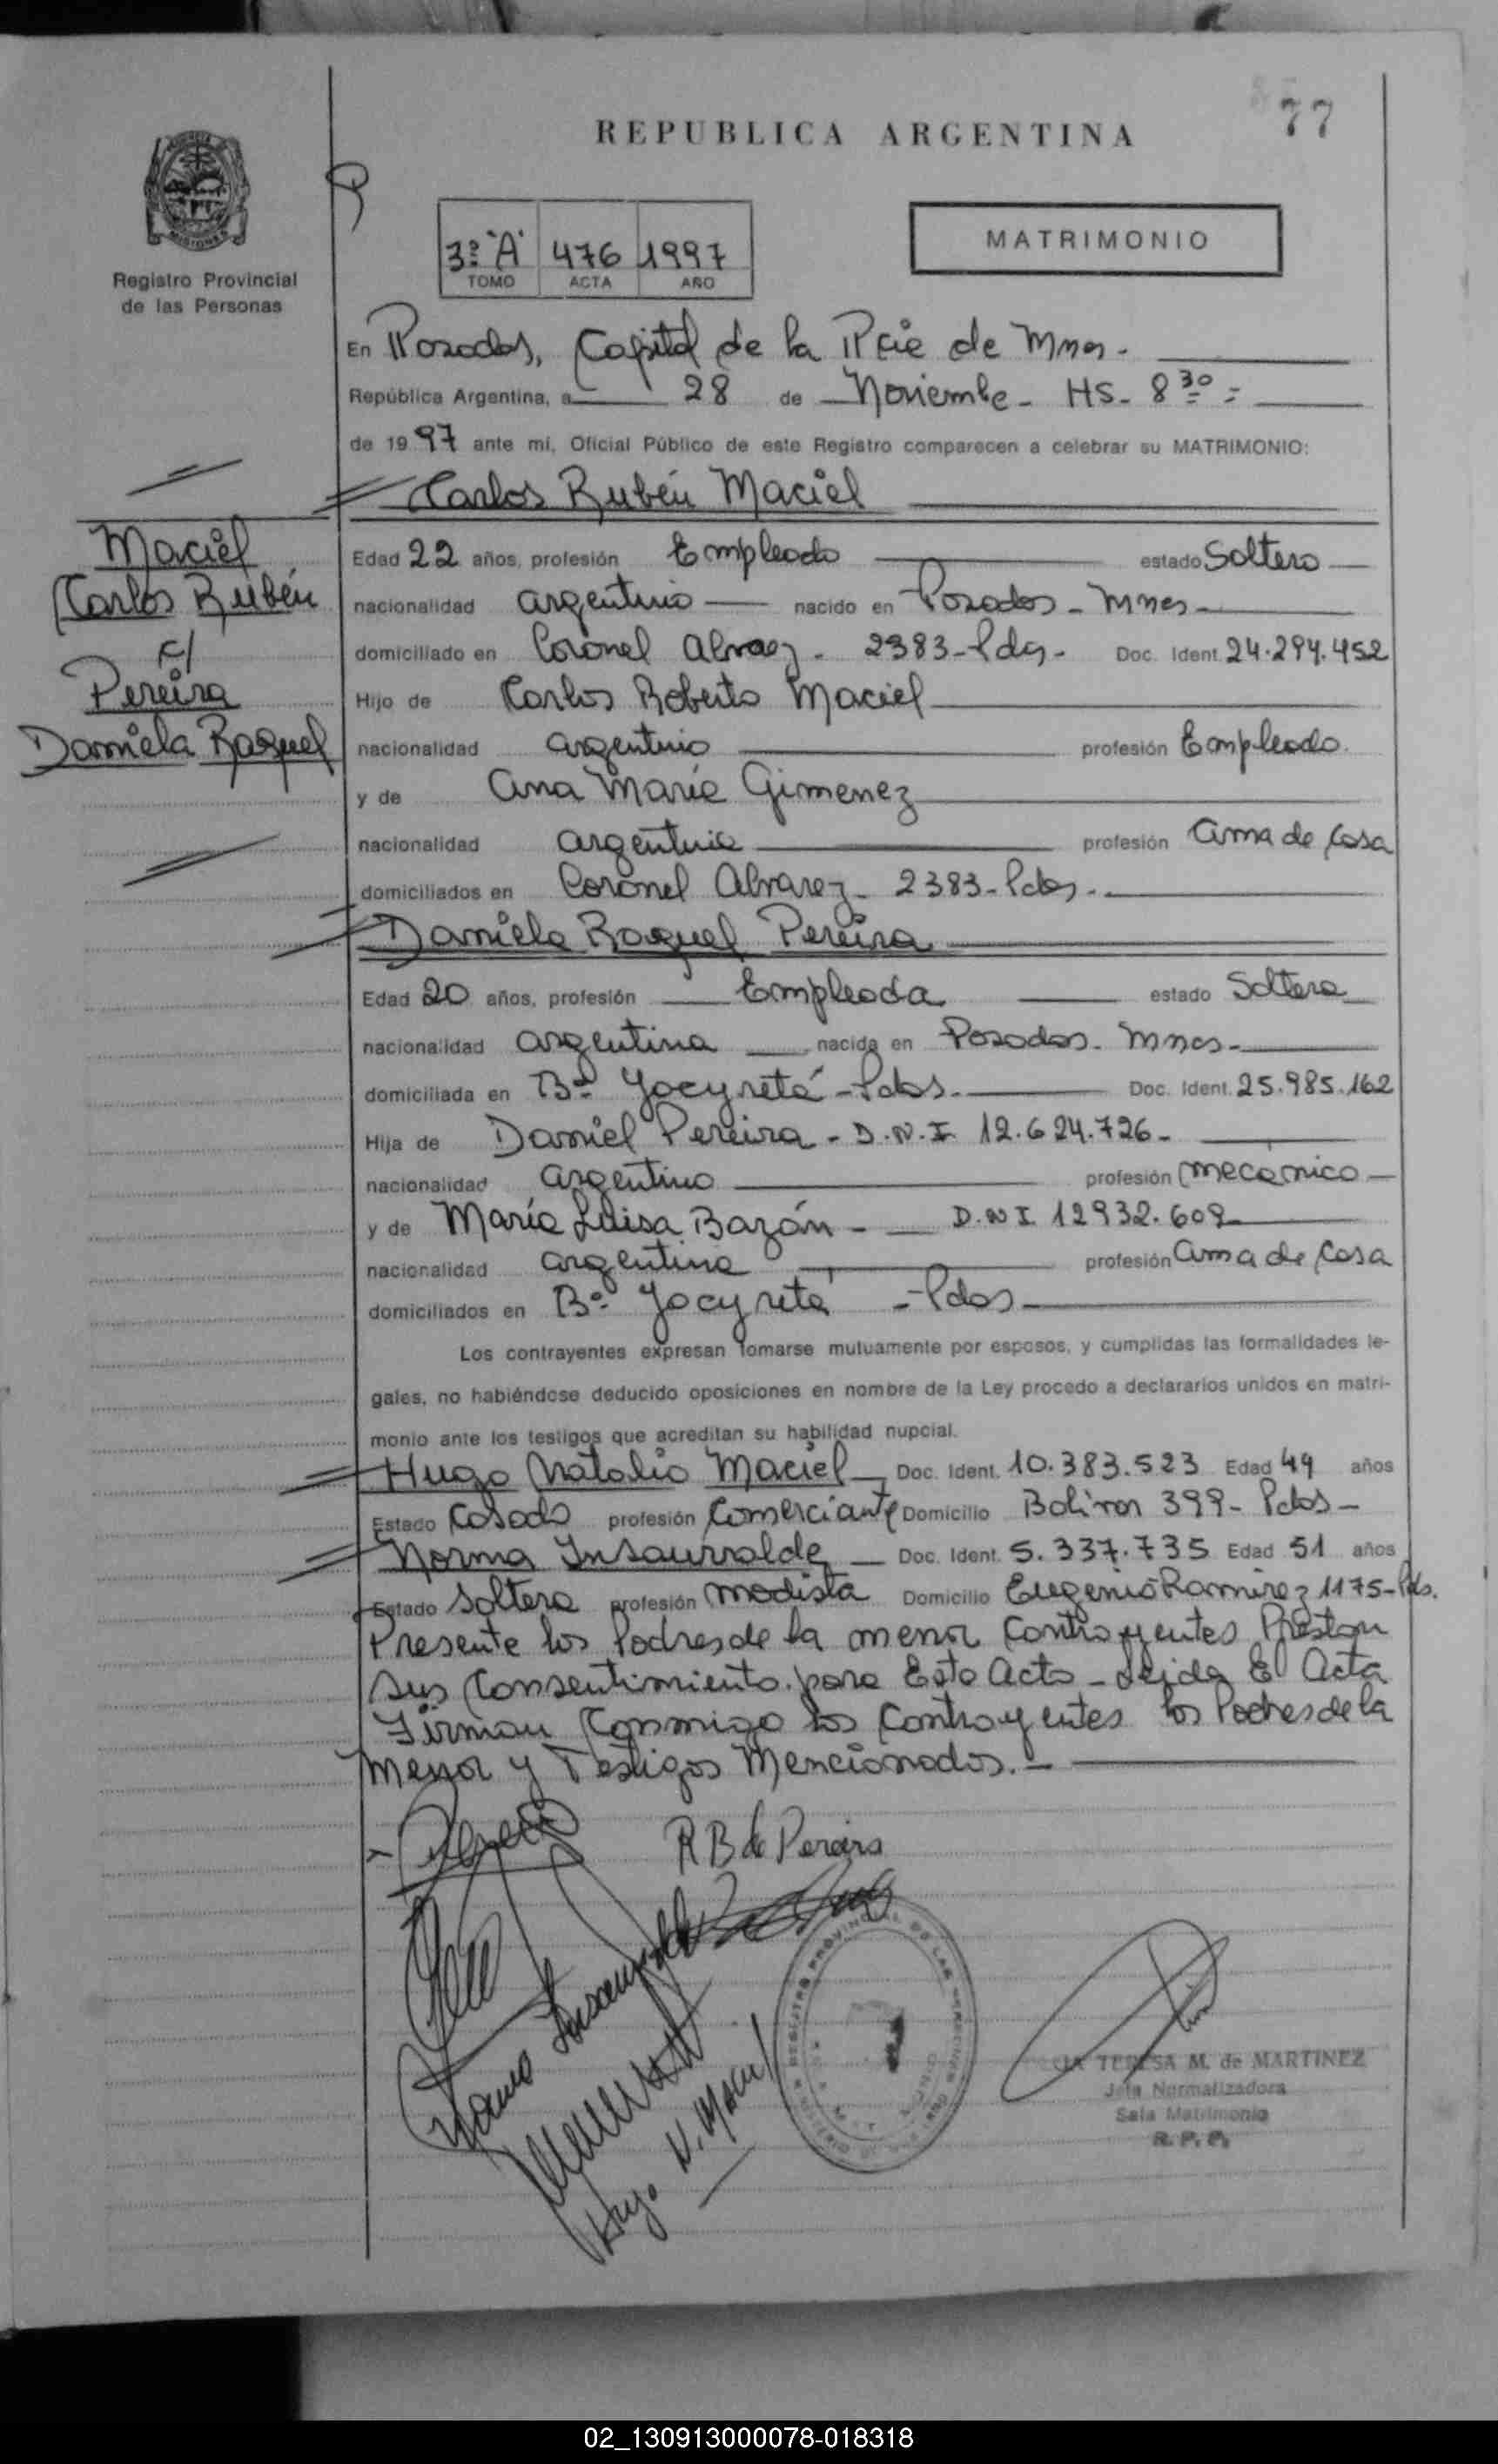 77
REPUBLICA ARGENTINA
MISIONES
Registro Provincial
de las Personas
3º "A" 476 1997
TOMO ACTA AÑO
MATRIMONIO
En Posadas, Capital de la Pcie de Mnes.
República Argentina, a 28 de Noviembe - HS. 8 30 =
de 1997 ante mi, Oficial Público de este Registro comparecen a celebrar su MATRIMONIO:
Carlos Rubén Maciel
Maciel
Carlos Rubén
c/
Pereira
Daniela Raquel
Edad 22 años, profesión Empleado estado Soltero
nacionalidad argentino nacido en Posadas - Mnes -
domiciliado en Coronel Alvarez - 2383 - Pdas - Doc. Ident. 24.294.452
Hijo de Carlos Roberto Maciel
nacionalidad argentino profesión Empleado
y de Ana María Gimenez
nacionalidad argentina profesión ama de casa
domiciliados en Coronel Alvarez - 2383 - Pdas -
Daniela Raquel Pereira
Edad 20 años, profesión Empleada estado Soltera
nacionalidad argentina nacida en Posadas - Mnes -
domiciliada en Bº Yacyretá - Pdas. Doc. Ident. 25.985.162
Hija de Daniel Pereira - D.N.I. 12.624.726 -
nacionalidad argentino profesión mecánico
y de María Luisa Bazán - D.N.I. 12932.609
nacionalidad argentina profesión ama de casa
domiciliados en Bº Yacyretá - Pdas
Los contrayentes expresan tomarse mutuamente por esposos, y cumplidas las formalidades le-
gales, no habiéndose deducido oposiciones en nombre de la Ley procedo a declararlos unidos en matri-
monio ante los testigos que acreditan su habilidad nupcial.
Hugo Natalio Maciel Doc. Ident. 10.383.523 Edad 49 años
Estado Casado profesión Comerciante Domicilio Bolivar 399 - Pdas -
Norma Insaurralde Doc. Ident. 5.337.735 Edad 51 años
Estado Soltera profesión modista Domicilio Eugenio Ramirez 1175 - Pds.
Presente los Padres de la menor Contrayentes Prestan
sus Consentimiento para Este Acto - Leida El Acta
Firman Conmigo los Contrayentes los Padres de la
Menor y Testigos Mencionados. -
R B de Pereira
Norma Insaurralde
Hugo N. Maciel
REGISTRO PROVINCIAL DE LAS PERSONAS
TERESA M. de MARTINEZ
Jefa Normalizadora
Sala Matrimonio
R. P. P.
02_130913000078-018318